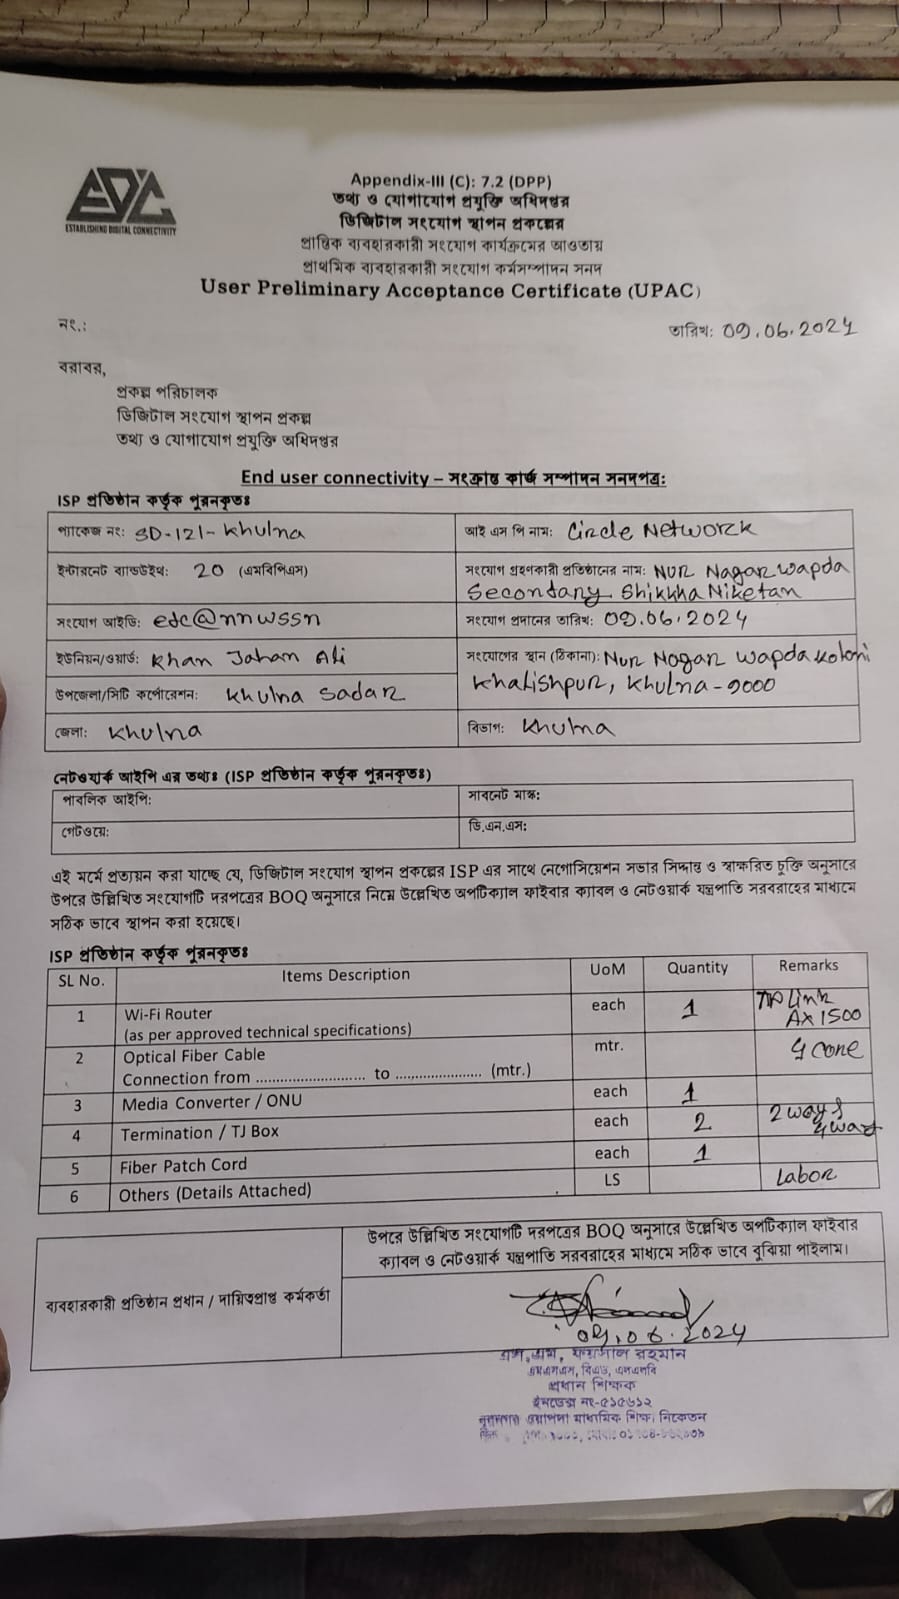 EDC
ESTABLISHING DIGITAL CONNECTIVITY
Appendix-III (C): 7.2 (DPP)
তথ্য ও যোগাযোগ প্রযুক্তি অধিদপ্তর
ডিজিটাল সংযোগ স্থাপন প্রকল্পের
প্রান্তিক ব্যবহারকারী সংযোগ কার্যক্রমের আওতায়
প্রাথমিক ব্যবহারকারী সংযোগ কর্মসম্পাদন সনদ
User Preliminary Acceptance Certificate (UPAC)
নং.:
তারিখ: 09.06.2024
বরাবর,
প্রকল্প পরিচালক
ডিজিটাল সংযোগ স্থাপন প্রকল্প
তথ্য ও যোগাযোগ প্রযুক্তি অধিদপ্তর
End user connectivity – সংক্রান্ত কার্জ সম্পাদন সনদপত্র:
ISP প্রতিষ্ঠান কর্তৃক পূরনকৃতঃ
প্যাকেজ নং: SD-121-Khulna
আই এস পি নাম: Circle Network
ইন্টারনেট ব্যান্ডউইথ: 20 (এমবিপিএস)
সংযোগ গ্রহণকারী প্রতিষ্ঠানের নাম: Nur Nagar Wapda
Secondary Shikkha Niketan
সংযোগ আইডি: edc@nnwssn
সংযোগ প্রদানের তারিখ: 09.06.2024
ইউনিয়ন/ওয়ার্ড: Khan Jahan Ali
সংযোগের স্থান (ঠিকানা): Nur Nagar Wapda Koloni
Khalishpur, Khulna-9000
উপজেলা/সিটি কর্পোরেশন: Khulna Sadar
জেলা: Khulna
বিভাগ: Khulna
নেটওয়ার্ক আইপি এর তথ্যঃ (ISP প্রতিষ্ঠান কর্তৃক পূরনকৃতঃ)
পাবলিক আইপি:
সাবনেট মাস্ক:
গেটওয়ে:
ডি.এন.এস:
এই মর্মে প্রত্যয়ন করা যাচ্ছে যে, ডিজিটাল সংযোগ স্থাপন প্রকল্পের ISP এর সাথে নেগোসিয়েশন সভার সিদ্ধান্ত ও স্বাক্ষরিত চুক্তি অনুসারে
উপরে উল্লিখিত সংযোগটি দরপত্রের BOQ অনুসারে নিম্নে উল্লেখিত অপটিক্যাল ফাইবার ক্যাবল ও নেটওয়ার্ক যন্ত্রপাতি সরবরাহের মাধ্যমে
সঠিক ভাবে স্থাপন করা হয়েছে।
ISP প্রতিষ্ঠান কর্তৃক পূরনকৃতঃ
SL No. Items Description UoM Quantity Remarks
1 Wi-Fi Router each 1 TP Link
(as per approved technical specifications) AX1500
2 Optical Fiber Cable mtr. 4 core
Connection from ............................ to ...................... (mtr.)
3 Media Converter / ONU each 1
4 Termination / TJ Box each 2 2 way &
4 way
5 Fiber Patch Cord each 1
6 Others (Details Attached) LS Labor
উপরে উল্লিখিত সংযোগটি দরপত্রের BOQ অনুসারে উল্লেখিত অপটিক্যাল ফাইবার
ক্যাবল ও নেটওয়ার্ক যন্ত্রপাতি সরবরাহের মাধ্যমে সঠিক ভাবে বুঝিয়া পাইলাম।
ব্যবহারকারী প্রতিষ্ঠান প্রধান / দায়িত্বপ্রাপ্ত কর্মকর্তা
09.06.2024
এস,এম, ফয়সাল রহমান
প্রধান শিক্ষক
ইনডেক্স নং-৫১৫৬১২
নূরনগর ওয়াপদা মাধ্যমিক শিক্ষা নিকেতন